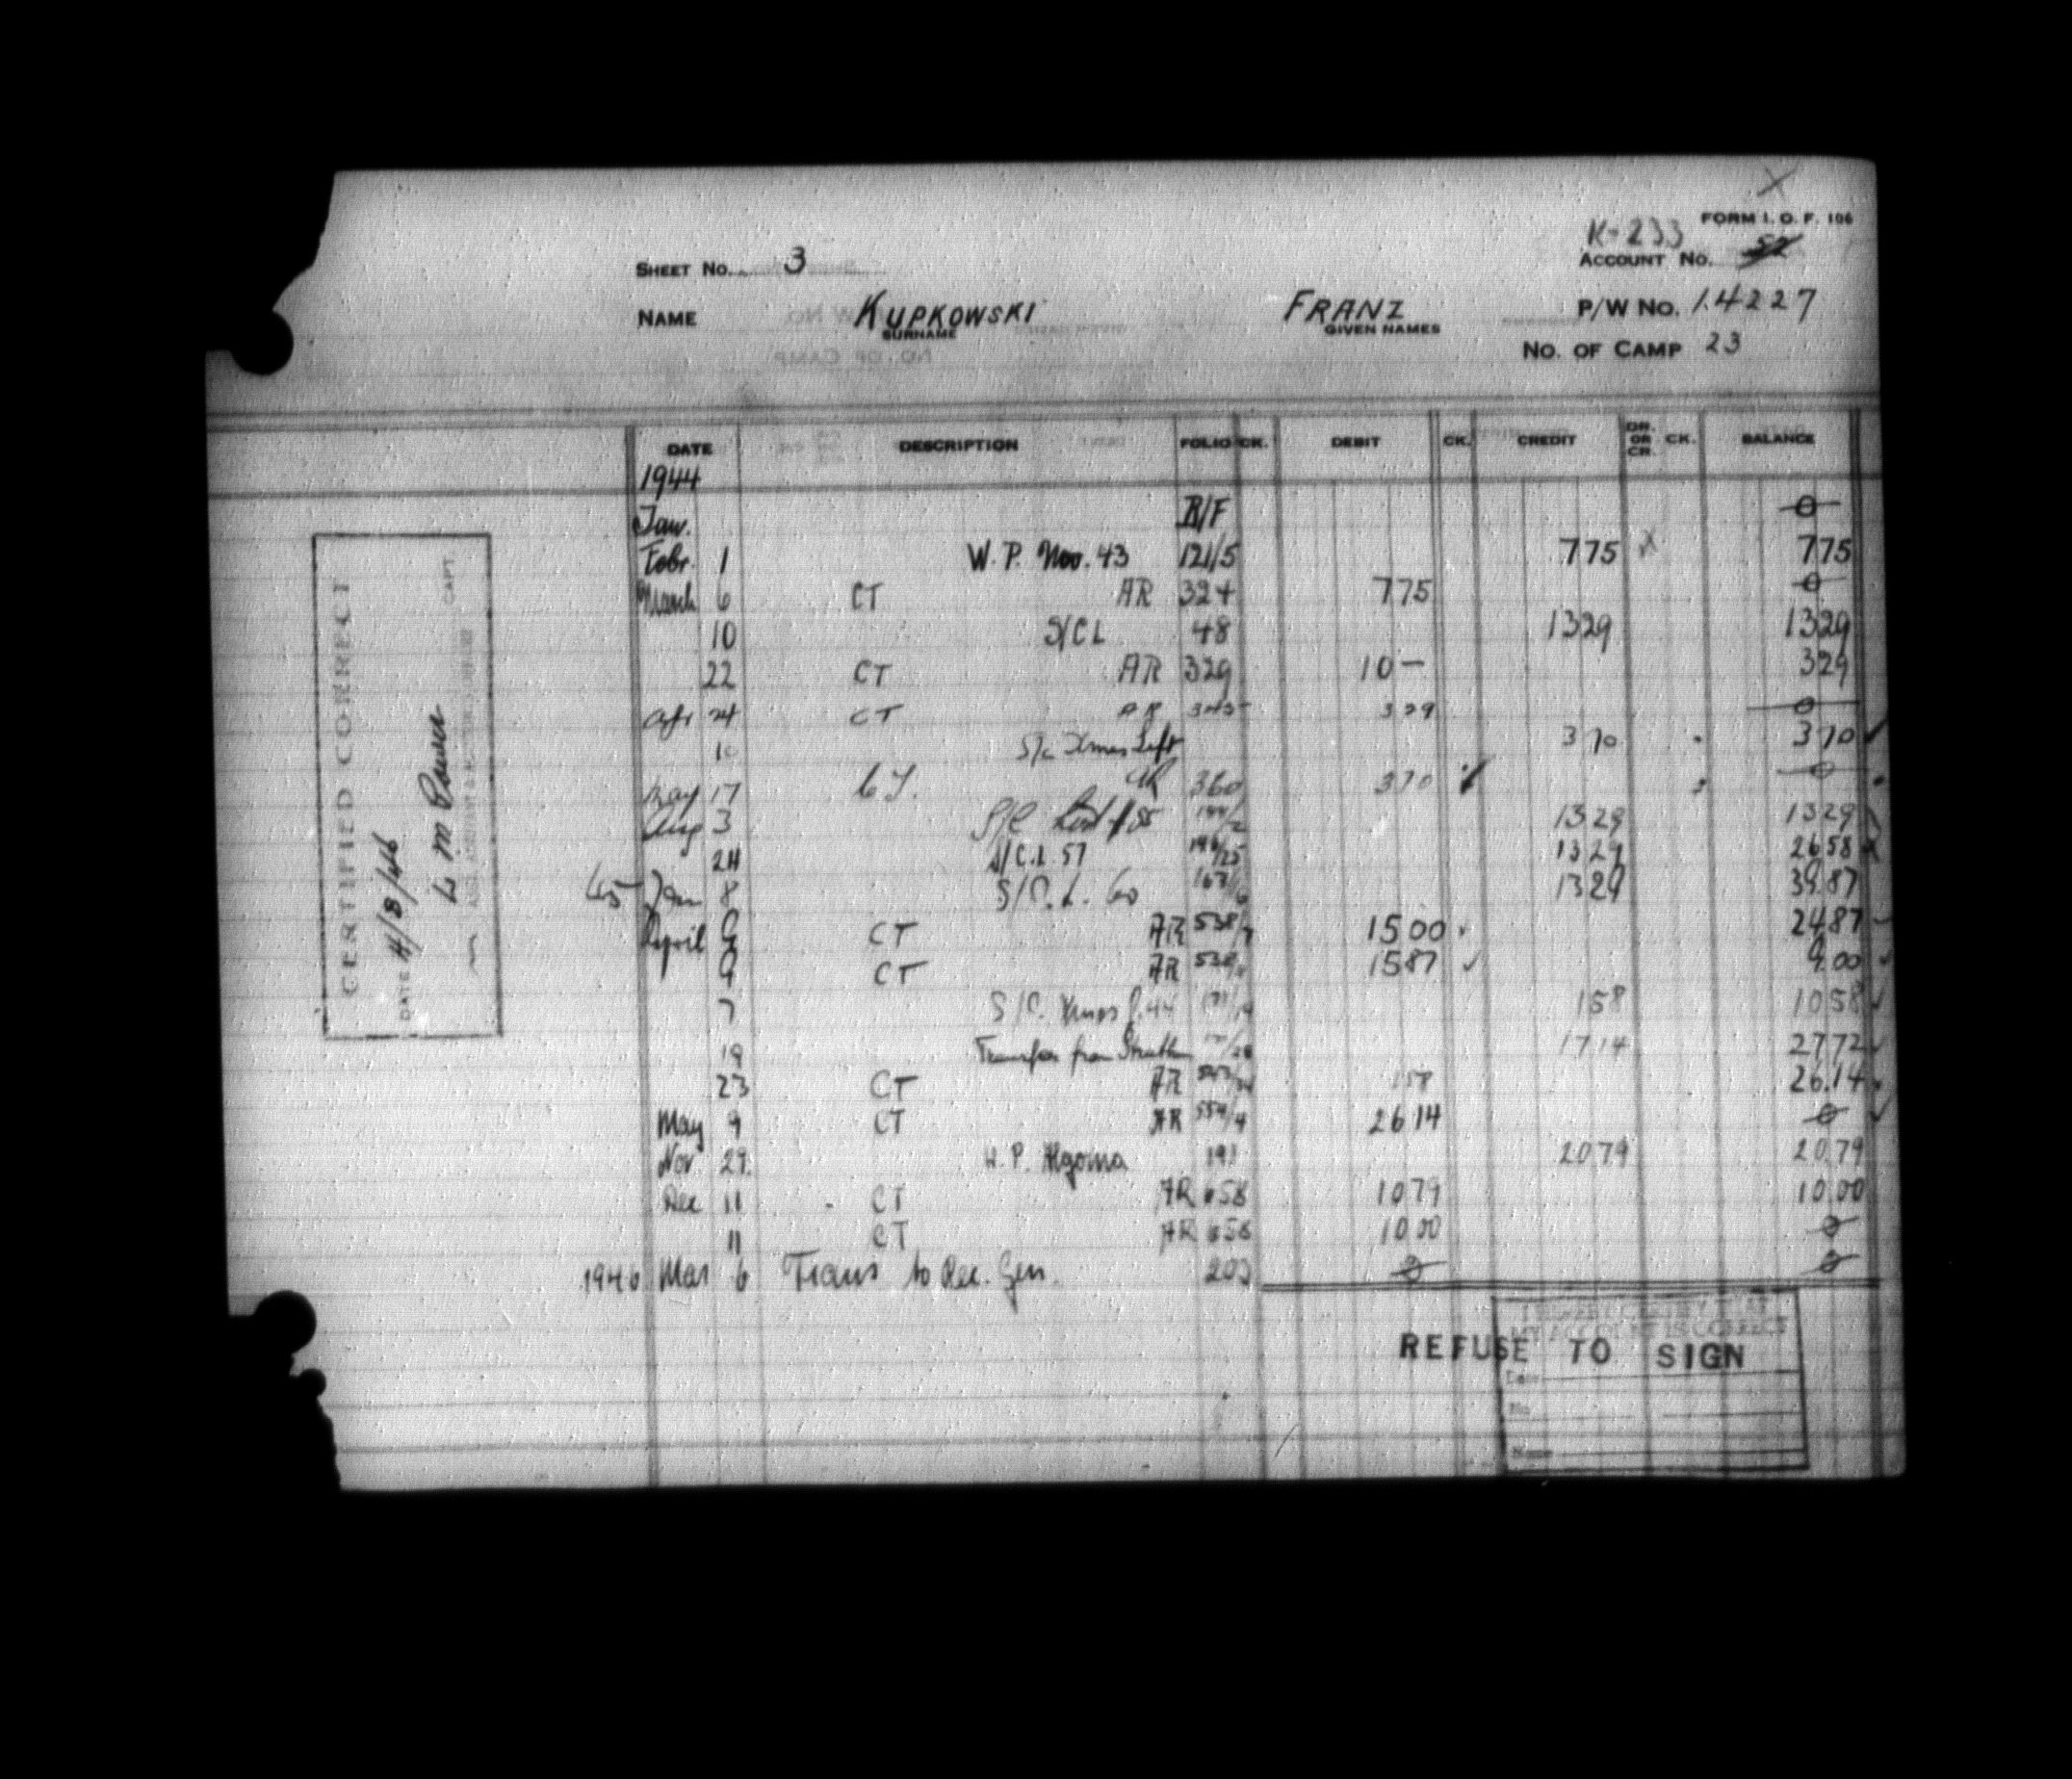 FORM I. O. F. 106
K-233
SHEET No. 3 ACCOUNT No. 52
NAME KUPKOWSKI FRANZ P/W No. 14227
SURNAME GIVEN NAMES
No. OF CAMP 23
DATE DESCRIPTION FOLIO CK. DEBIT CK. CREDIT DR. OR CR. CK. BALANCE
1944
Jan. B/F 0
Febr. 1 W. P. Nov. 43 121/5 775 775
March 6 CT AR 324 775 0
10 S/CL 48 1329 1329
22 CT AR 329 10 — 329
Apr 24 CT AR 329 0
10 S/c Xmas Gift 370 370
May 17 AR 360 370 0
Aug 3 S/C 1329 1329
24 S/C.L. 57 1329 2658
45 Jan 8 S/C. L. 60 1329 39.87
April CT AR 538 1500 2487
9 CT AR 1587 9.00
7 S/C. Xmas 44 158 1058
19 Transfer from 1714 2772
23 CT AR 158 26.14
May 9 CT AR 554/4 2614 0
Nov 29. W. P. Algoma 191 2079 20.79
Dec 11 CT AR 658 1079 10.00
11 CT AR 658 1000 0
1946 Mar 6 Trans to Rec. Gen. 202 0 0
I HEREBY CERTIFY THAT
MY ACCOUNT IS CORRECT
REFUSE TO SIGN
Date
No
Name
CERTIFIED CORRECT
DATE 4/3/46
CAPT.